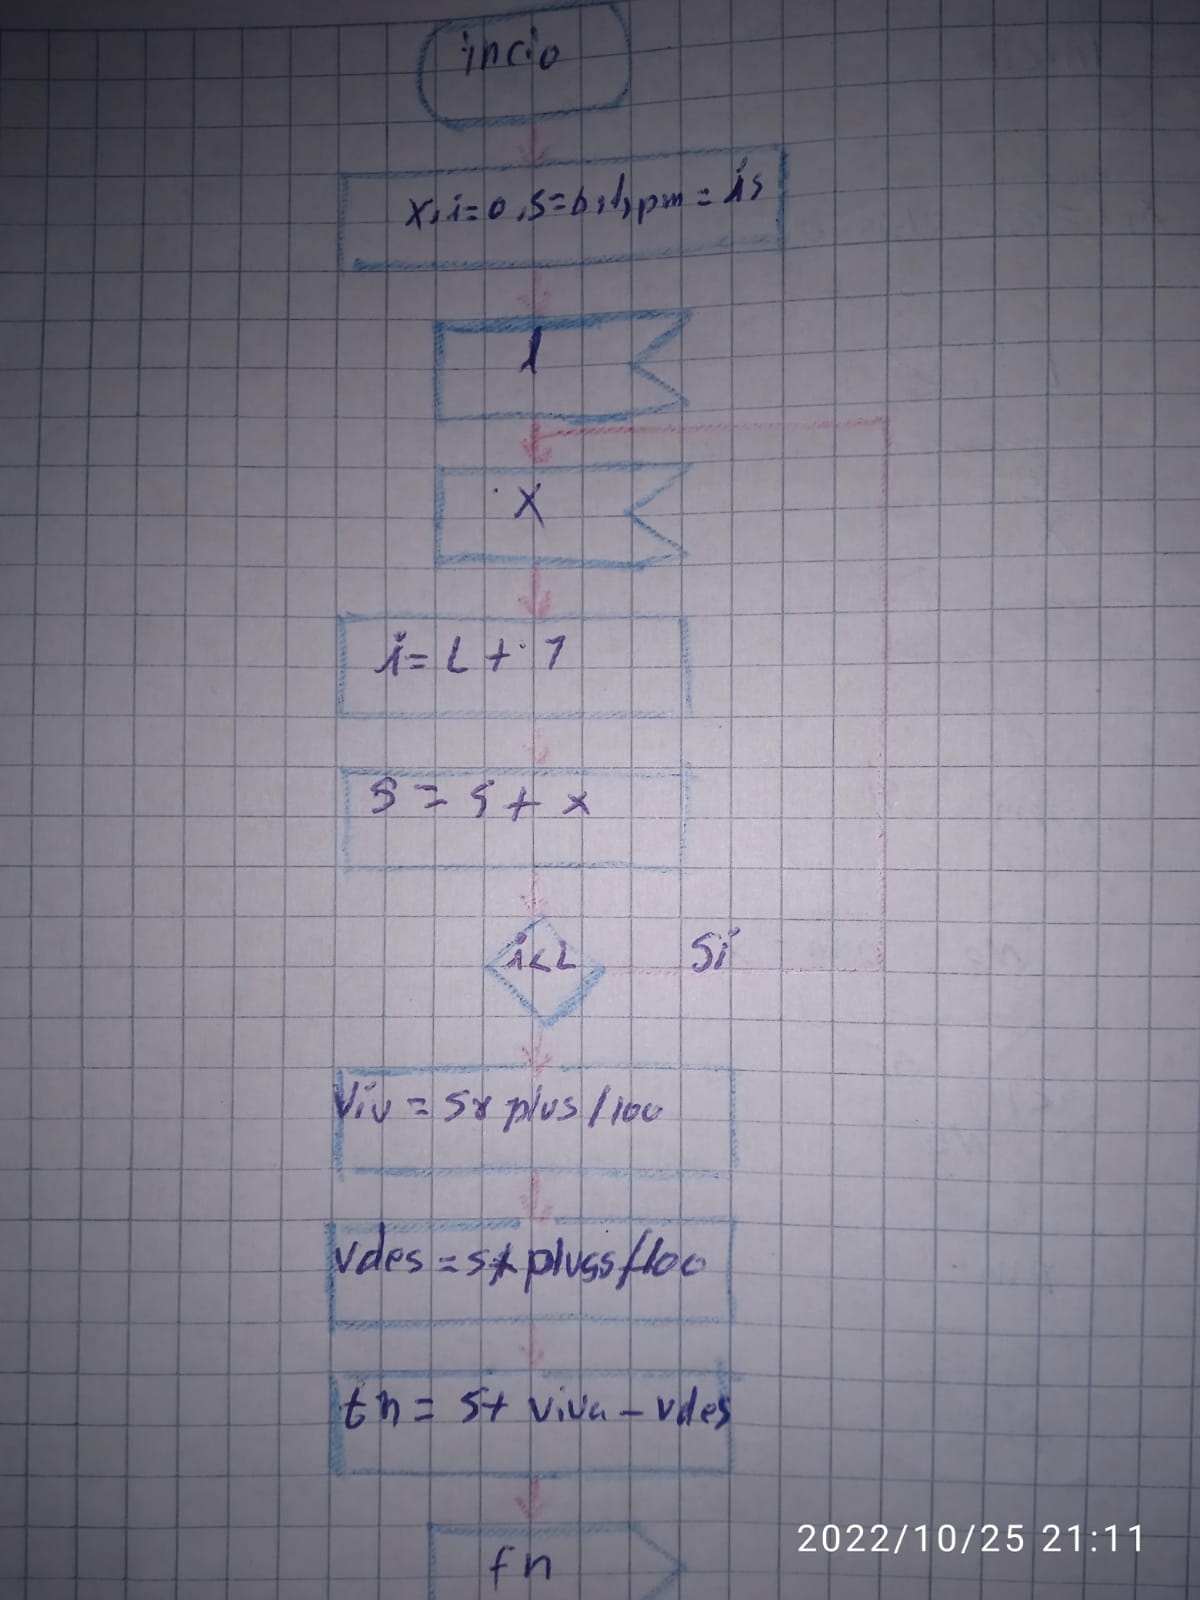 incio
x, i=0, s=0, l, pm = is
l
X
i= L + 1
S = S + x
i<L
Si
Viv = Sx plus/100
Vdes = Sx pluss/100
tn = S+ viva - vdes
fn
2022/10/25 21:11